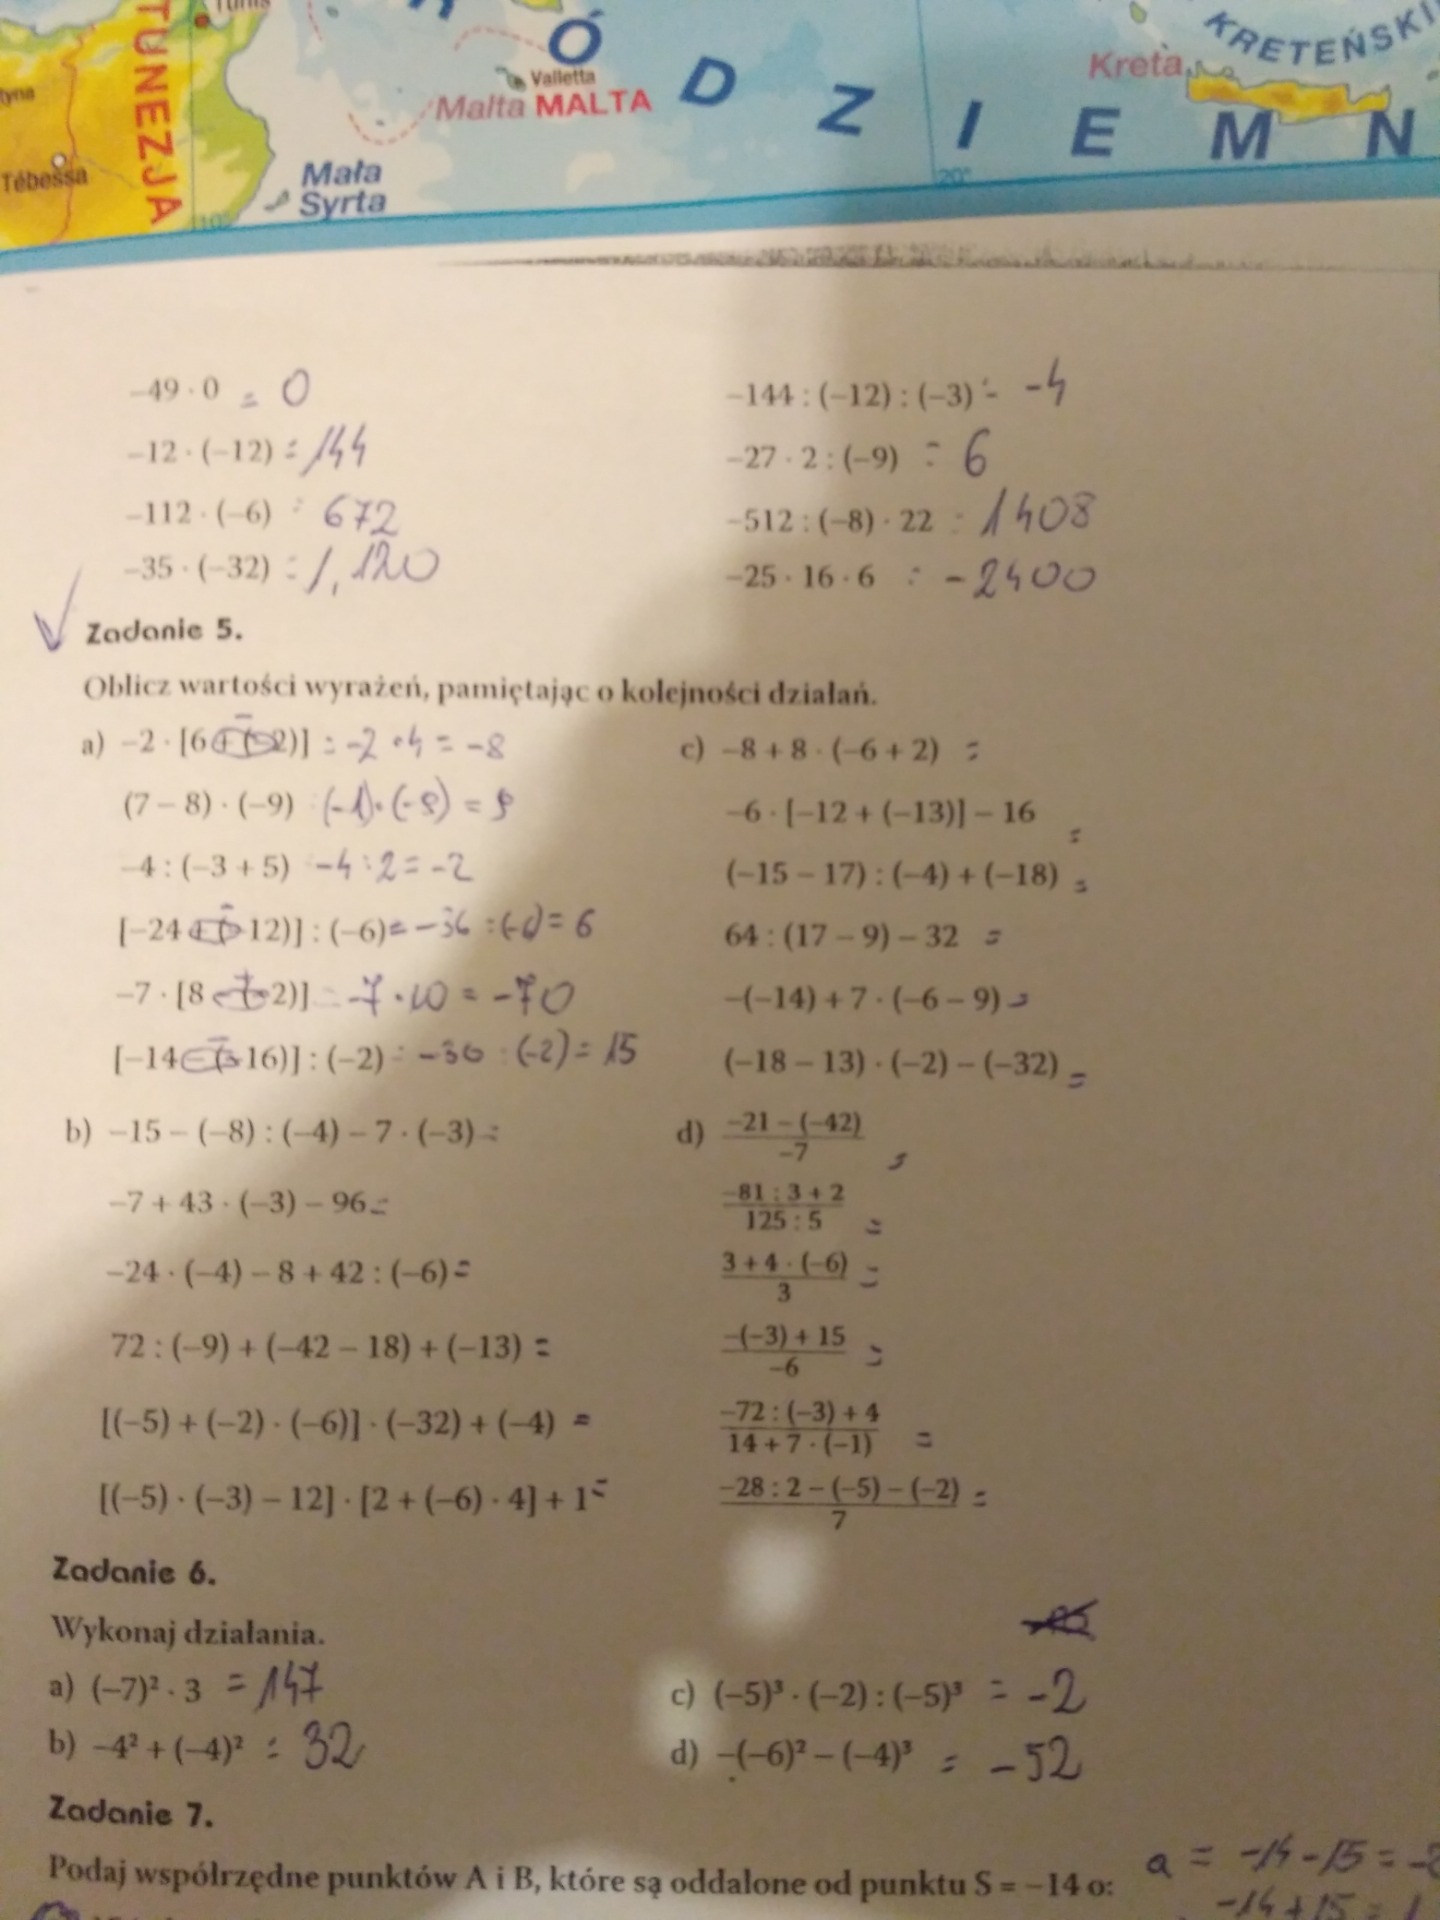 TUNEZJA
Tunis
Ó D Z I E M N
Valletta
Malta MALTA
Kreta
KRETEŃSKI
Tébessa
Mała
Syrta
10°
20°
-49 · 0 = 0
-144 : (-12) : (-3) = -4
-12 · (-12) = 144
-27 · 2 : (-9) = 6
-112 · (-6) = 672
-512 : (-8) · 22 = 1408
-35 · (-32) = 1,120
-25 · 16 · 6 = -2400
Zadanie 5.
Oblicz wartości wyrażeń, pamiętając o kolejności działań.
a) -2 · [6 + (-2)] = -2 · 4 = -8
(7 - 8) · (-9) = (-1) · (-9) = 9
-4 : (-3 + 5) = -4 : 2 = -2
[-24 + (-12)] : (-6) = -36 : (-6) = 6
-7 · [8 - (-2)] = -7 · 10 = -70
[-14 - (+16)] : (-2) = -30 : (-2) = 15
b) -15 - (-8) : (-4) - 7 · (-3) =
-7 + 43 · (-3) - 96 =
-24 · (-4) - 8 + 42 : (-6) =
72 : (-9) + (-42 - 18) + (-13) =
[(-5) + (-2) · (-6)] · (-32) + (-4) =
[(-5) · (-3) - 12] · [2 + (-6) · 4] + 1 =
c) -8 + 8 · (-6 + 2) =
-6 · [-12 + (-13)] - 16 =
(-15 - 17) : (-4) + (-18) =
64 : (17 - 9) - 32 =
-(-14) + 7 · (-6 - 9) =
(-18 - 13) · (-2) - (-32) =
d) -21 - (-42)
-7 =
-81 : 3 + 2
125 : 5 =
3 + 4 · (-6)
3 =
-(-3) + 15
-6 =
-72 : (-3) + 4
14 + 7 · (-1) =
-28 : 2 - (-5) - (-2)
7 =
Zadanie 6.
Wykonaj działania.
a) (-7)² · 3 = 147
c) (-5)³ · (-2) : (-5)³ = -2
b) -4² + (-4)² = 32
d) -(-6)² - (-4)³ = -52
Zadanie 7.
Podaj współrzędne punktów A i B, które są oddalone od punktu S = -14 o:
a = -14 - 15 = -2
-14 + 15 = 1